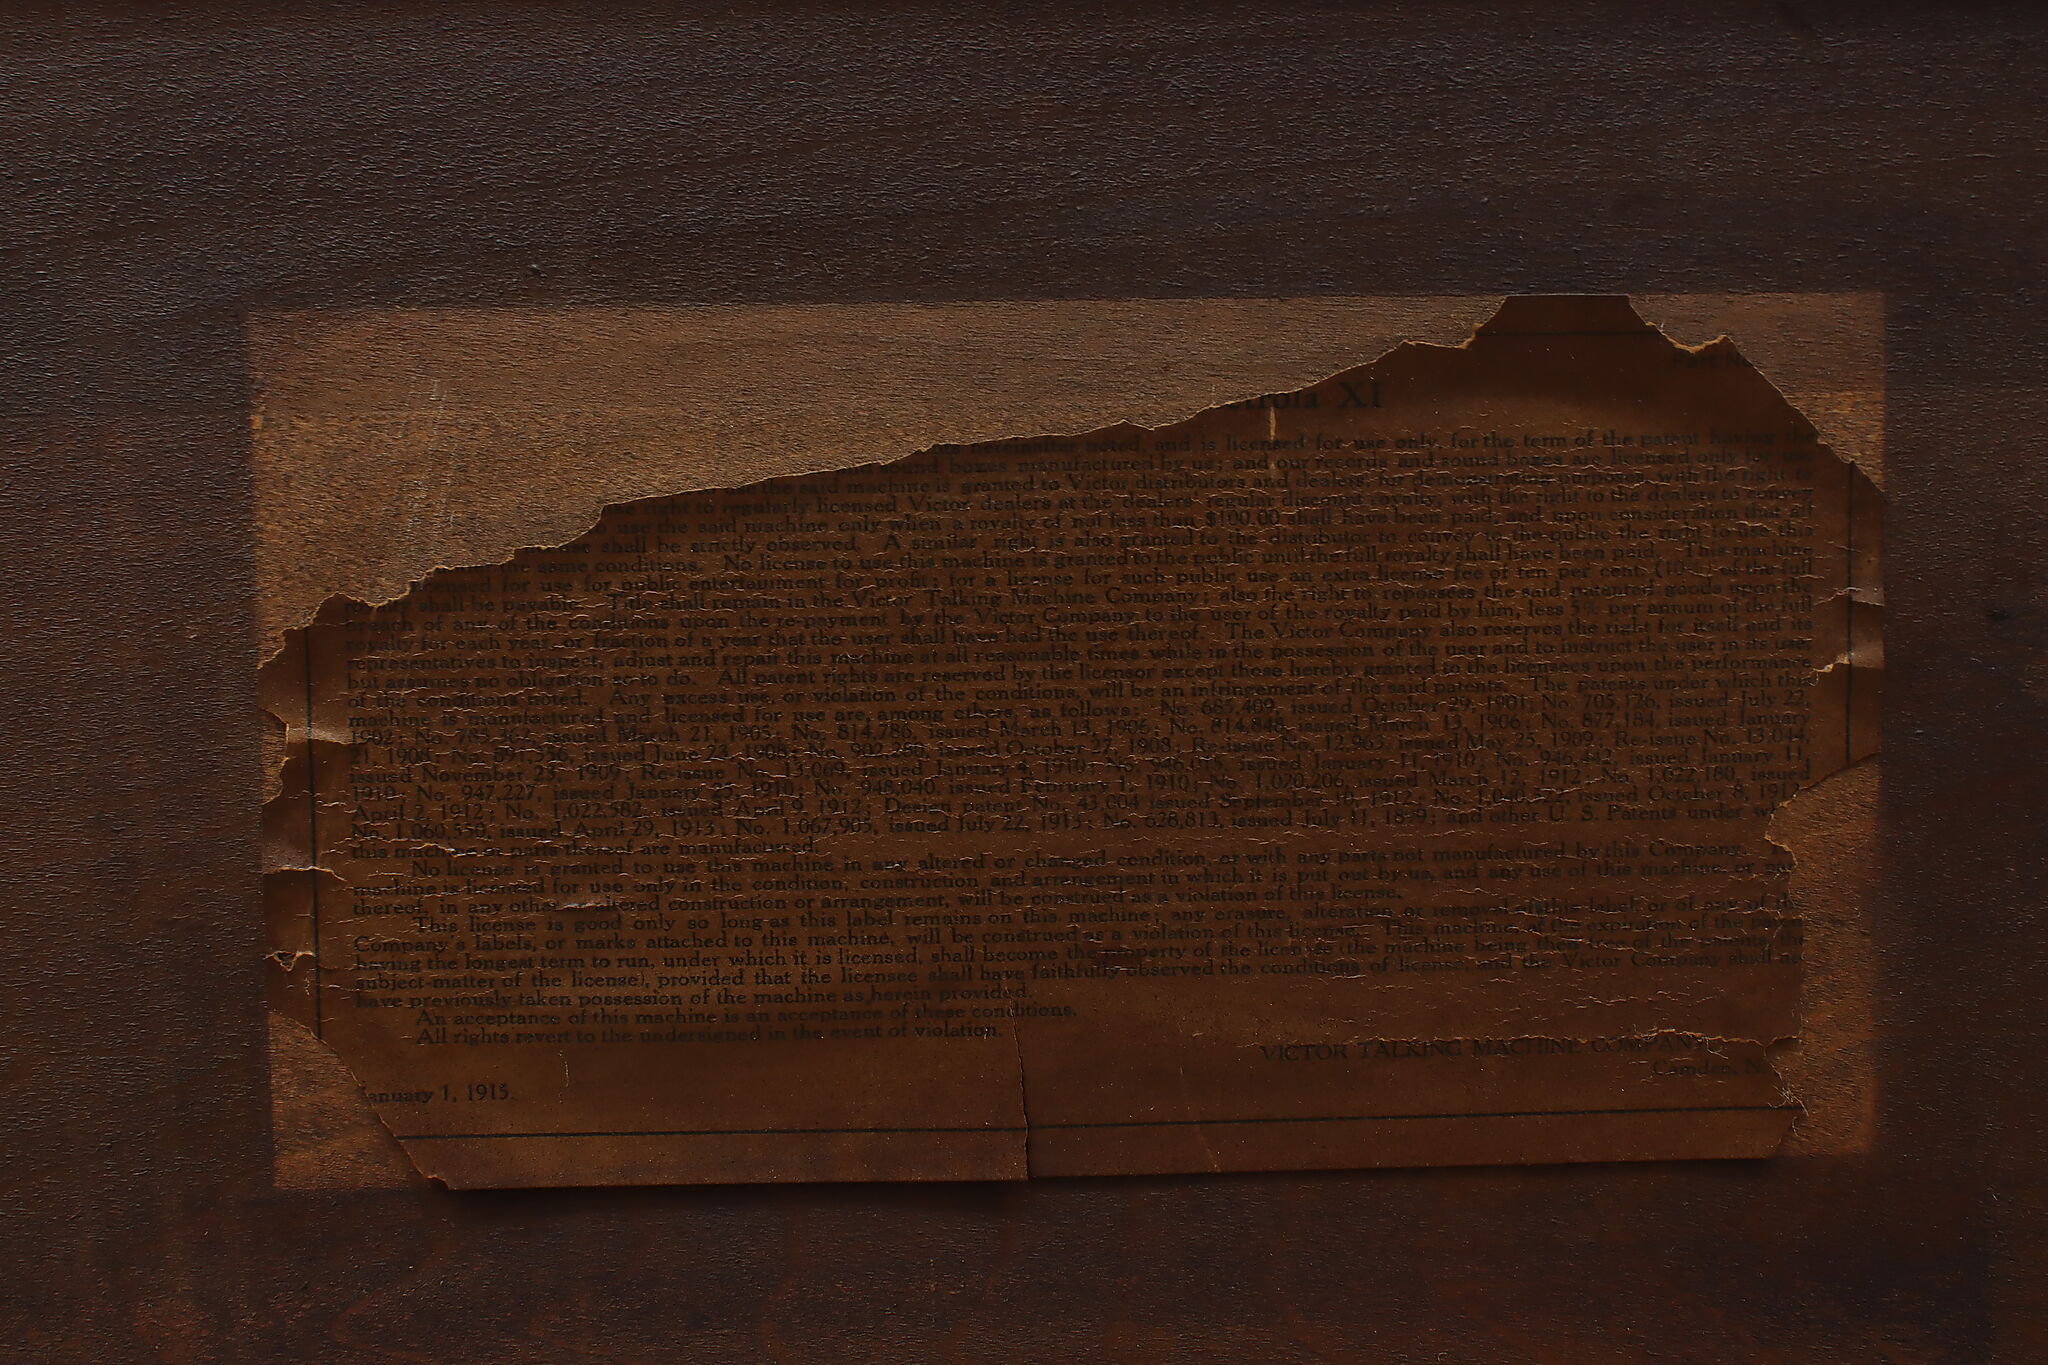 XI
hereinafter noted, and is licensed for use only, for the term of the patent having the
sound boxes manufactured by us; and our records and sound boxes are licensed only for use
to use the said machine is granted to Victor distributors and dealers, for demonstrating purposes, with the right to
right to regularly licensed Victor dealers at the dealers' regular discount royalty, with the right to the dealers to convey
use the said machine only when a royalty of not less than $100.00 shall have been paid, and upon consideration that all
shall be strictly observed. A similar right is also granted to the distributor to convey to the public the right to use this
the same conditions. No license to use this machine is granted to the public until the full royalty shall have been paid. This machine
for use for public entertainment for profit; for a license for such public use an extra license fee of ten per cent. (10%) of the full
royalty shall be payable. Title shall remain in the Victor Talking Machine Company; also the right to repossess the said patented goods upon the
breach of any of the conditions upon the re-payment by the Victor Company to the user of the royalty paid by him, less 5% per annum of the full
royalty for each year, or fraction of a year that the user shall have had the use thereof. The Victor Company also reserves the right for itself and its
representatives to inspect, adjust and repair this machine at all reasonable times while in the possession of the user and to instruct the user in its use,
but assumes no obligation so to do. All patent rights are reserved by the licensor except those hereby granted to the licensees upon the performance
of the conditions noted. Any excess use, or violation of the conditions, will be an infringement of the said patents. The patents under which this
machine is manufactured and licensed for use are, among others, as follows: No. 685,409, issued October 29, 1901; No. 705,126, issued July 22,
1902; No. 785,362, issued March 21, 1905; No. 814,786, issued March 13, 1906; No. 814,848, issued March 13, 1906; No. 877,184, issued January
21, 1908; No. 891,356, issued June 23, 1908; No. 902,260, issued October 27, 1908; Re-issue No. 12,963, issued May 25, 1909; Re-issue No. 13,044,
issued November 23, 1909; Re-issue No. 13,069, issued January 4, 1910; No. 946,015, issued January 11, 1910; No. 946,442, issued January 11,
1910; No. 947,227, issued January 25, 1910; No. 948,040, issued February 1, 1910; No. 1,020,206, issued March 12, 1912; No. 1,022,180, issued
April 2, 1912; No. 1,022,582, issued April 9, 1912; Design patent No. 43,004 issued September 10, 1912; No. 1,040,522, issued October 8, 1912;
No. 1,060,550, issued April 29, 1913; No. 1,067,905, issued July 22, 1913; No. 628,813, issued July 11, 1899; and other U. S. Patents under
this machine or parts thereof are manufactured.
No license is granted to use this machine in any altered or changed condition, or with any parts not manufactured by this Company.
machine is licensed for use only in the condition, construction and arrangement in which it is put out by us, and any use of this machine, or
thereof, in any other or altered construction or arrangement, will be construed as a violation of this license.
This license is good only so long as this label remains on this machine; any erasure, alteration or removal of this label, or of any of the
Company's labels, or marks attached to this machine, will be construed as a violation of this license. This machine, at the expiration of the patent
having the longest term to run, under which it is licensed, shall become the property of the licensee (the machine being then free of the patents, the
subject-matter of the license), provided that the licensee shall have faithfully observed the conditions of license, and the Victor Company shall
have previously taken possession of the machine as herein provided.
An acceptance of this machine is an acceptance of these conditions.
All rights revert to the undersigned in the event of violation.
VICTOR TALKING MACHINE COMPANY,
Camden, N.
January 1, 1915.